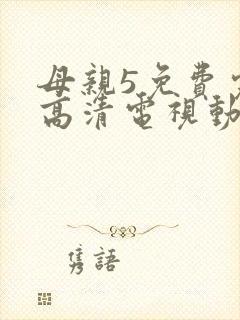 母親5免費
高清電視動
雋語